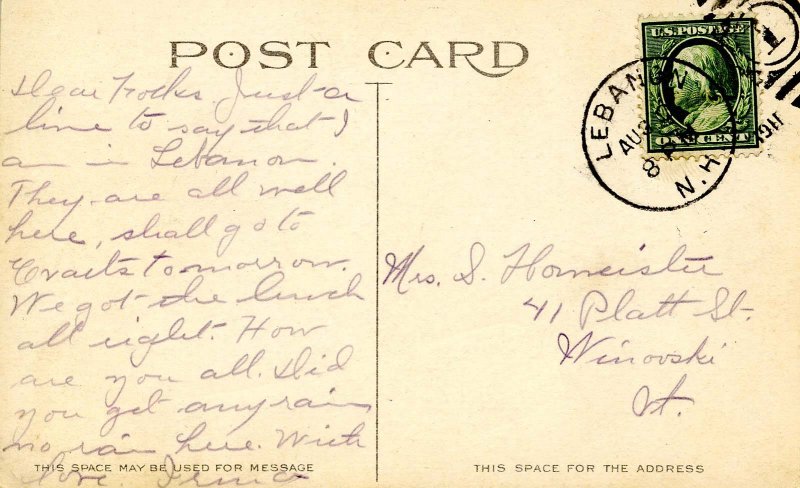 POST CARD
U.S. POSTAGE
ONE CENT
LEBANON
AUG
8 PM
N.H.
1911
1
Dear Folks, Just a
line to say that I
am in Lebanon.
They are all well
here, shall go to
Evarts tomorrow.
We got the lunch
all right. How
are you all. Did
you get any rain
no rain here. With
Love.
Mrs. S. Homeister
41 Platt St.
Winooski
Vt.
THIS SPACE MAY BE USED FOR MESSAGE
THIS SPACE FOR THE ADDRESS